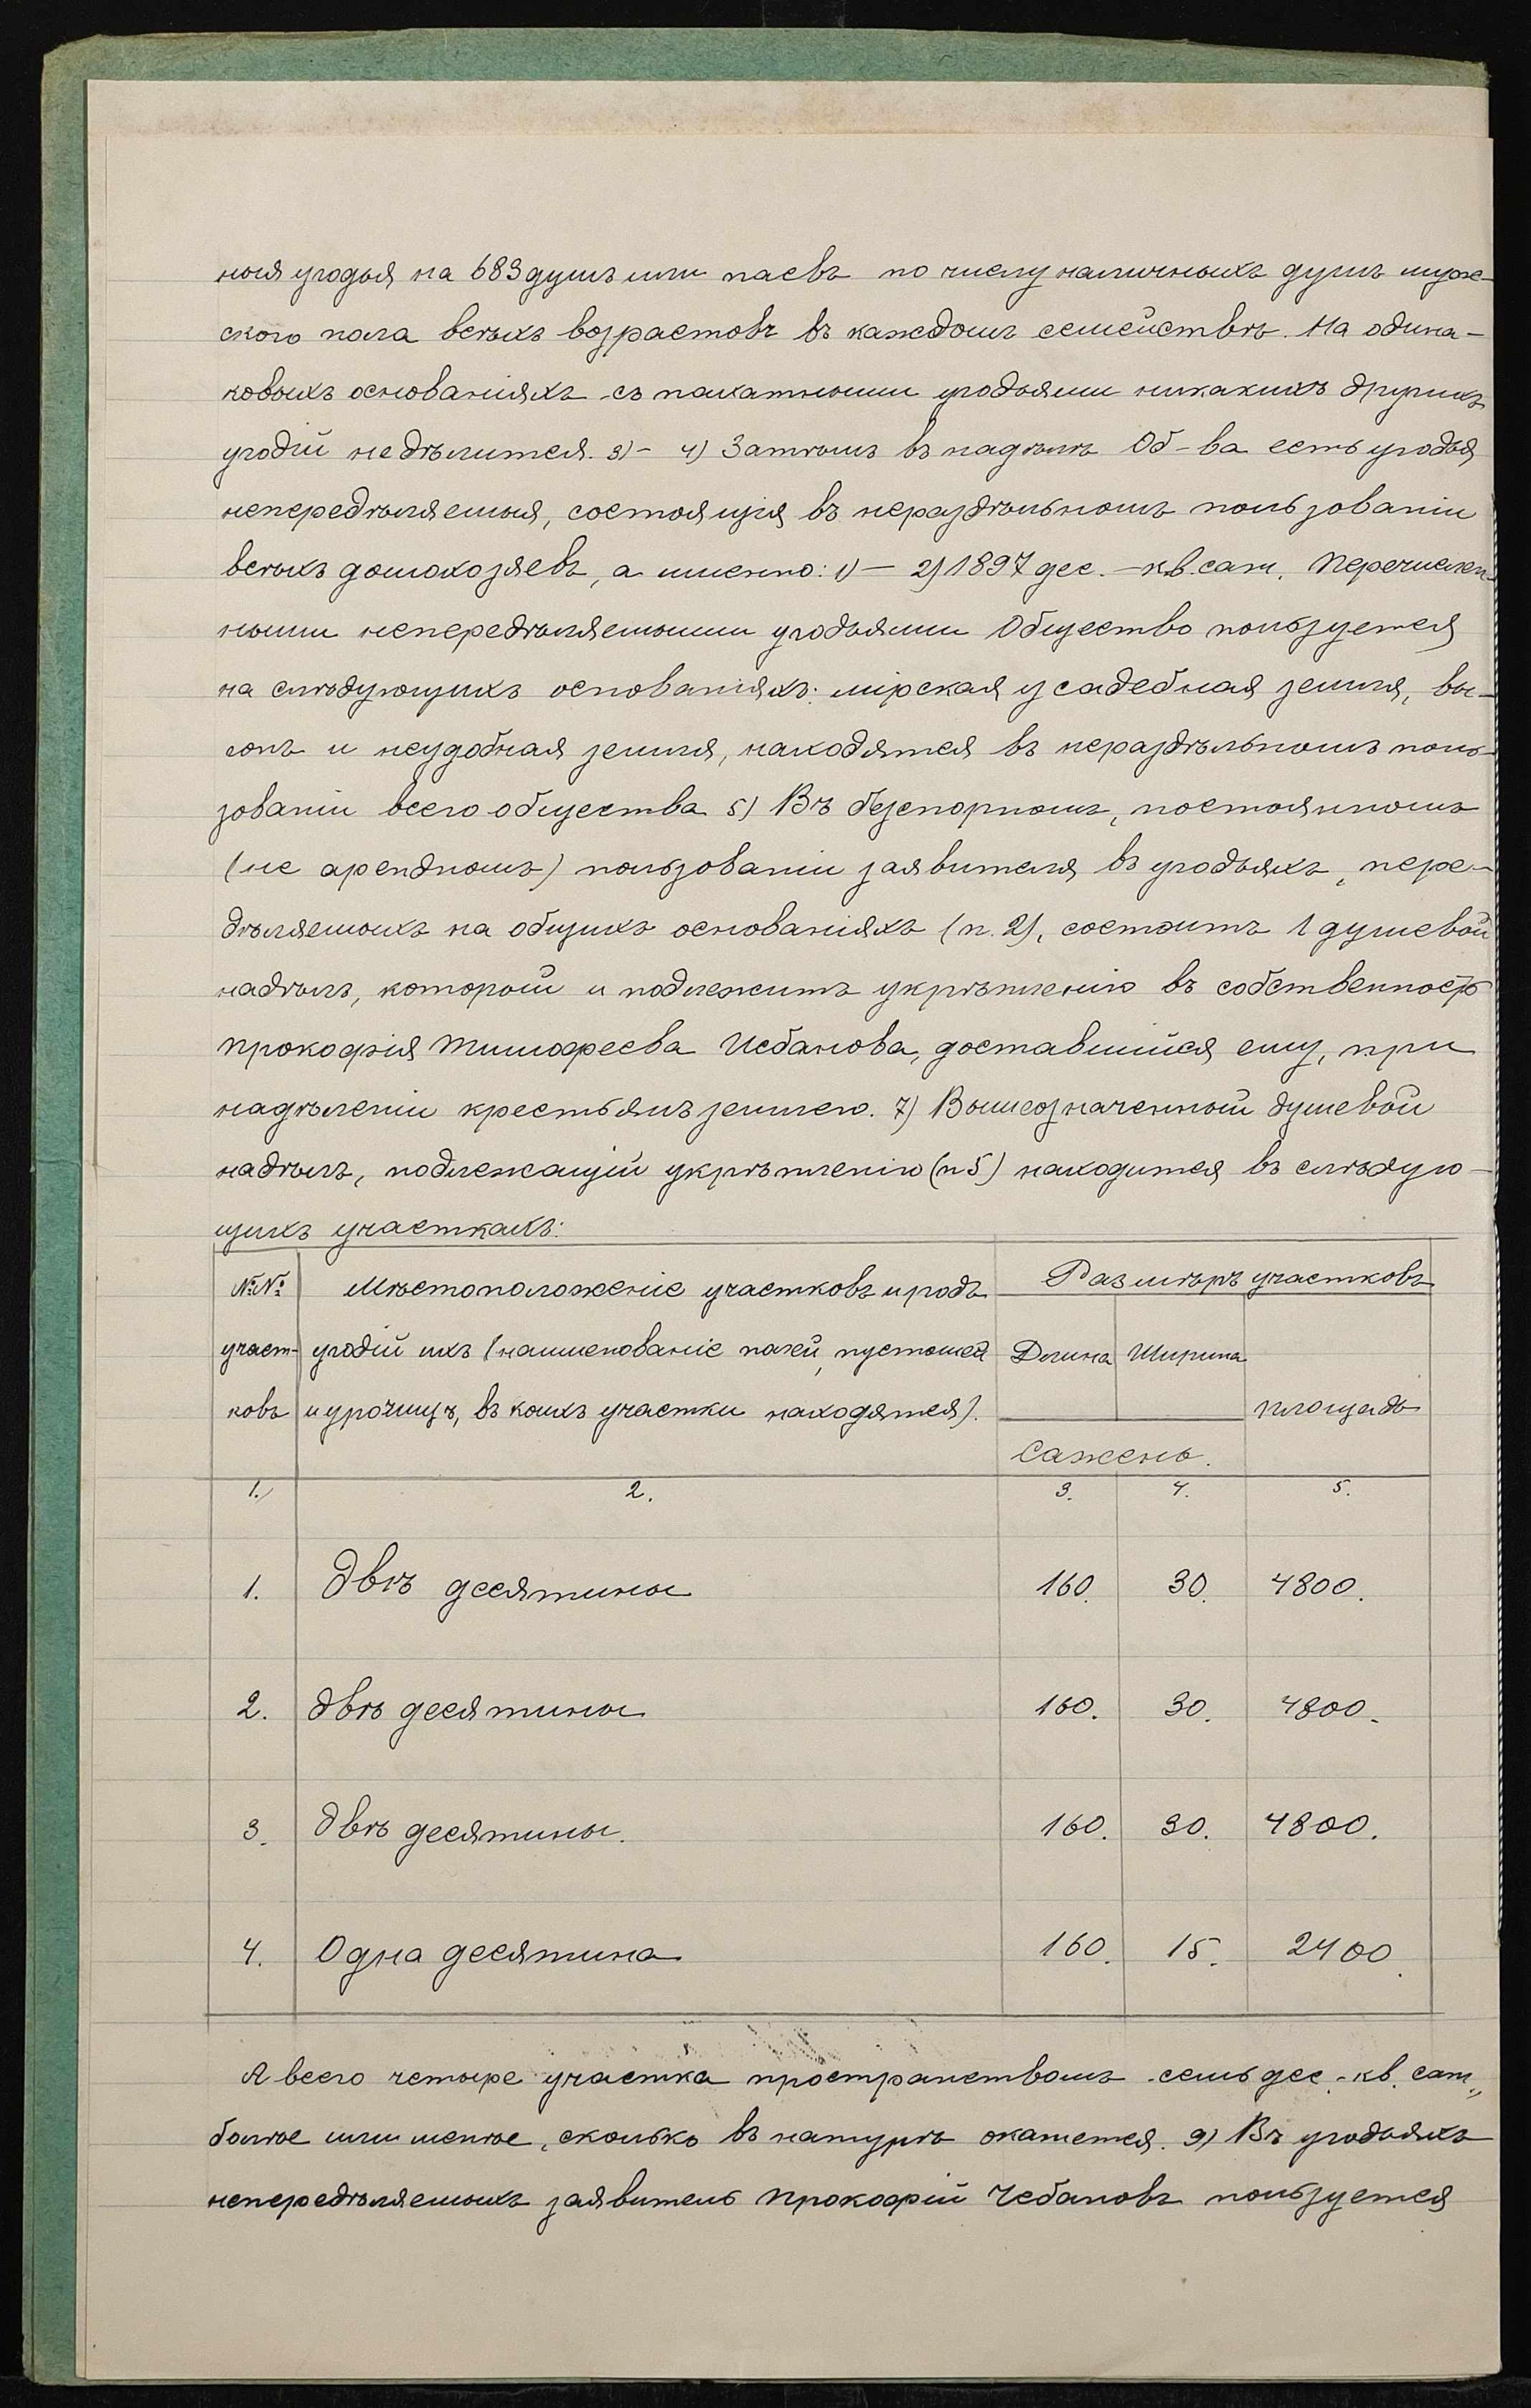 ныя угодья на 683 душъ или паевъ по числу наличныхъ душъ муже-
скаго пола всѣхъ возрастовъ въ каждомъ семействѣ. На одина-
ковыхъ основаніяхъ съ пахатными угодьями никакихъ другихъ
угодій не дѣлится. 3) - 4) Затѣмъ въ надѣлѣ Об-ва есть угодья
непередѣляемыя, состоящія въ нераздѣльномъ пользованіи
всѣхъ домохозяевъ, а именно: 1) - 2) 1897 дес. - кв. саж. Перечислен-
ными непередѣляемыми угодьями Общество пользуется
на слѣдующихъ основаніяхъ: мірская усадебная земля, вы-
гонъ и неудобная земля, находятся въ нераздѣльномъ поль-
зованіи всего общества 5) Въ безспорномъ, постоянномъ
(не арендномъ) пользованіи заявителя въ угодьяхъ, пере-
дѣляемыхъ на общихъ основаніяхъ (п. 2), состоитъ 1 душевой
надѣлъ, который и подлежитъ укрѣпленію въ собственность
Прокофія Тимофеева Чебанова, доставшійся ему, при
надѣленіи крестьянъ землею. 7) Вышеозначенный душевой
надѣлъ, подлежащій укрѣпленію (п 5) находится въ слѣдую-
щихъ участкахъ:
№№ Мѣстоположеніе участковъ и родъ Размѣръ участковъ
участ- угодій ихъ (наименованіе полей, пустошей Длина Ширина
ковъ и урочищъ, въ коихъ участки находятся). площадь
Сажень.
1. 2. 3. 4. 5.
1. Двѣ десятины 160. 30. 4800.
2. Двѣ десятины 160. 30. 4800.
3. Двѣ десятины. 160. 30. 4800.
4. Одна десятина 160. 15. 2400.
А всего четыре участка пространствомъ семь дес. - кв. саж.,
болѣе или менѣе, сколько въ натурѣ окажется. 9) Въ угодьяхъ
непередѣляемыхъ заявитель Прокофій Чебановъ пользуется